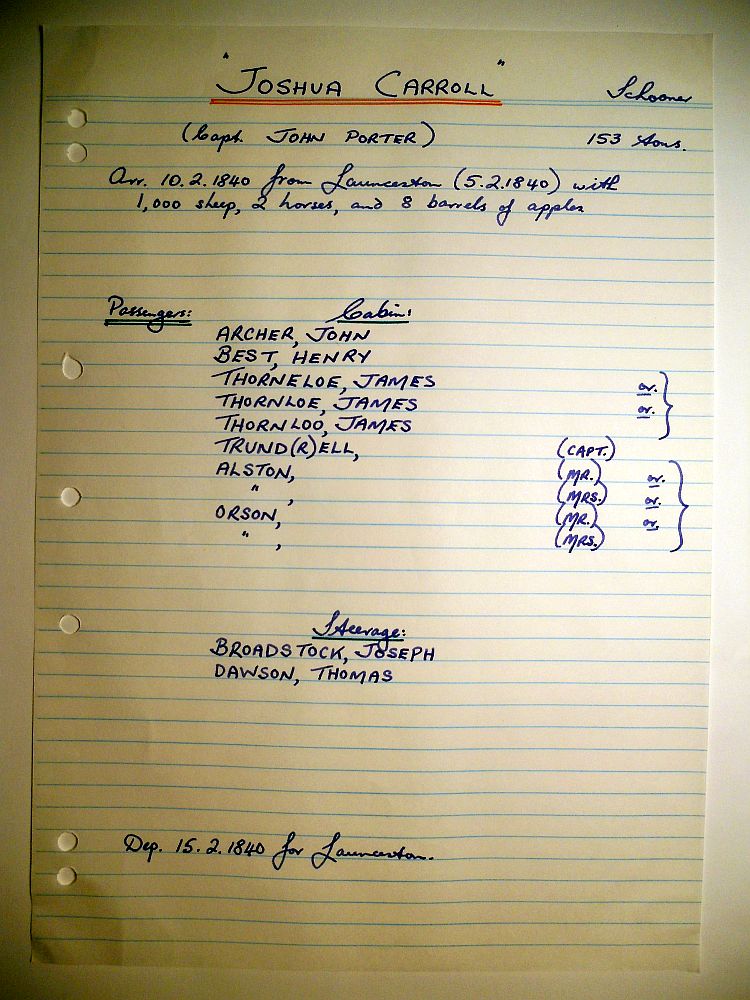 "JOSHUA CARROLL" Schooner
(Capt. JOHN PORTER) 153 tons.
Arr. 10.2.1840 from Launceston (5.2.1840) with
1,000 sheep, 2 horses, and 8 barrels of apples
Passengers: Cabin:
ARCHER, JOHN
BEST, HENRY
THORNELOE, JAMES or. }
THORNLOE, JAMES or.
THORNLOO, JAMES
TRUND(R)ELL, (CAPT.)
ALSTON, (MR.) or. }
" , (MRS.) or.
ORSON, (MR.) or.
" , (MRS.)
Steerage:
BROADSTOCK, JOSEPH
DAWSON, THOMAS
Dep. 15.2.1840 for Launceston.